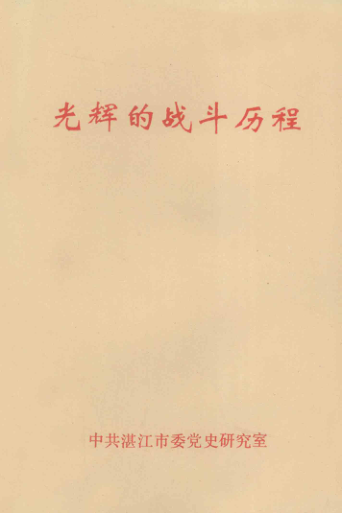 光辉的战斗历程
中共湛江市委党史研究室